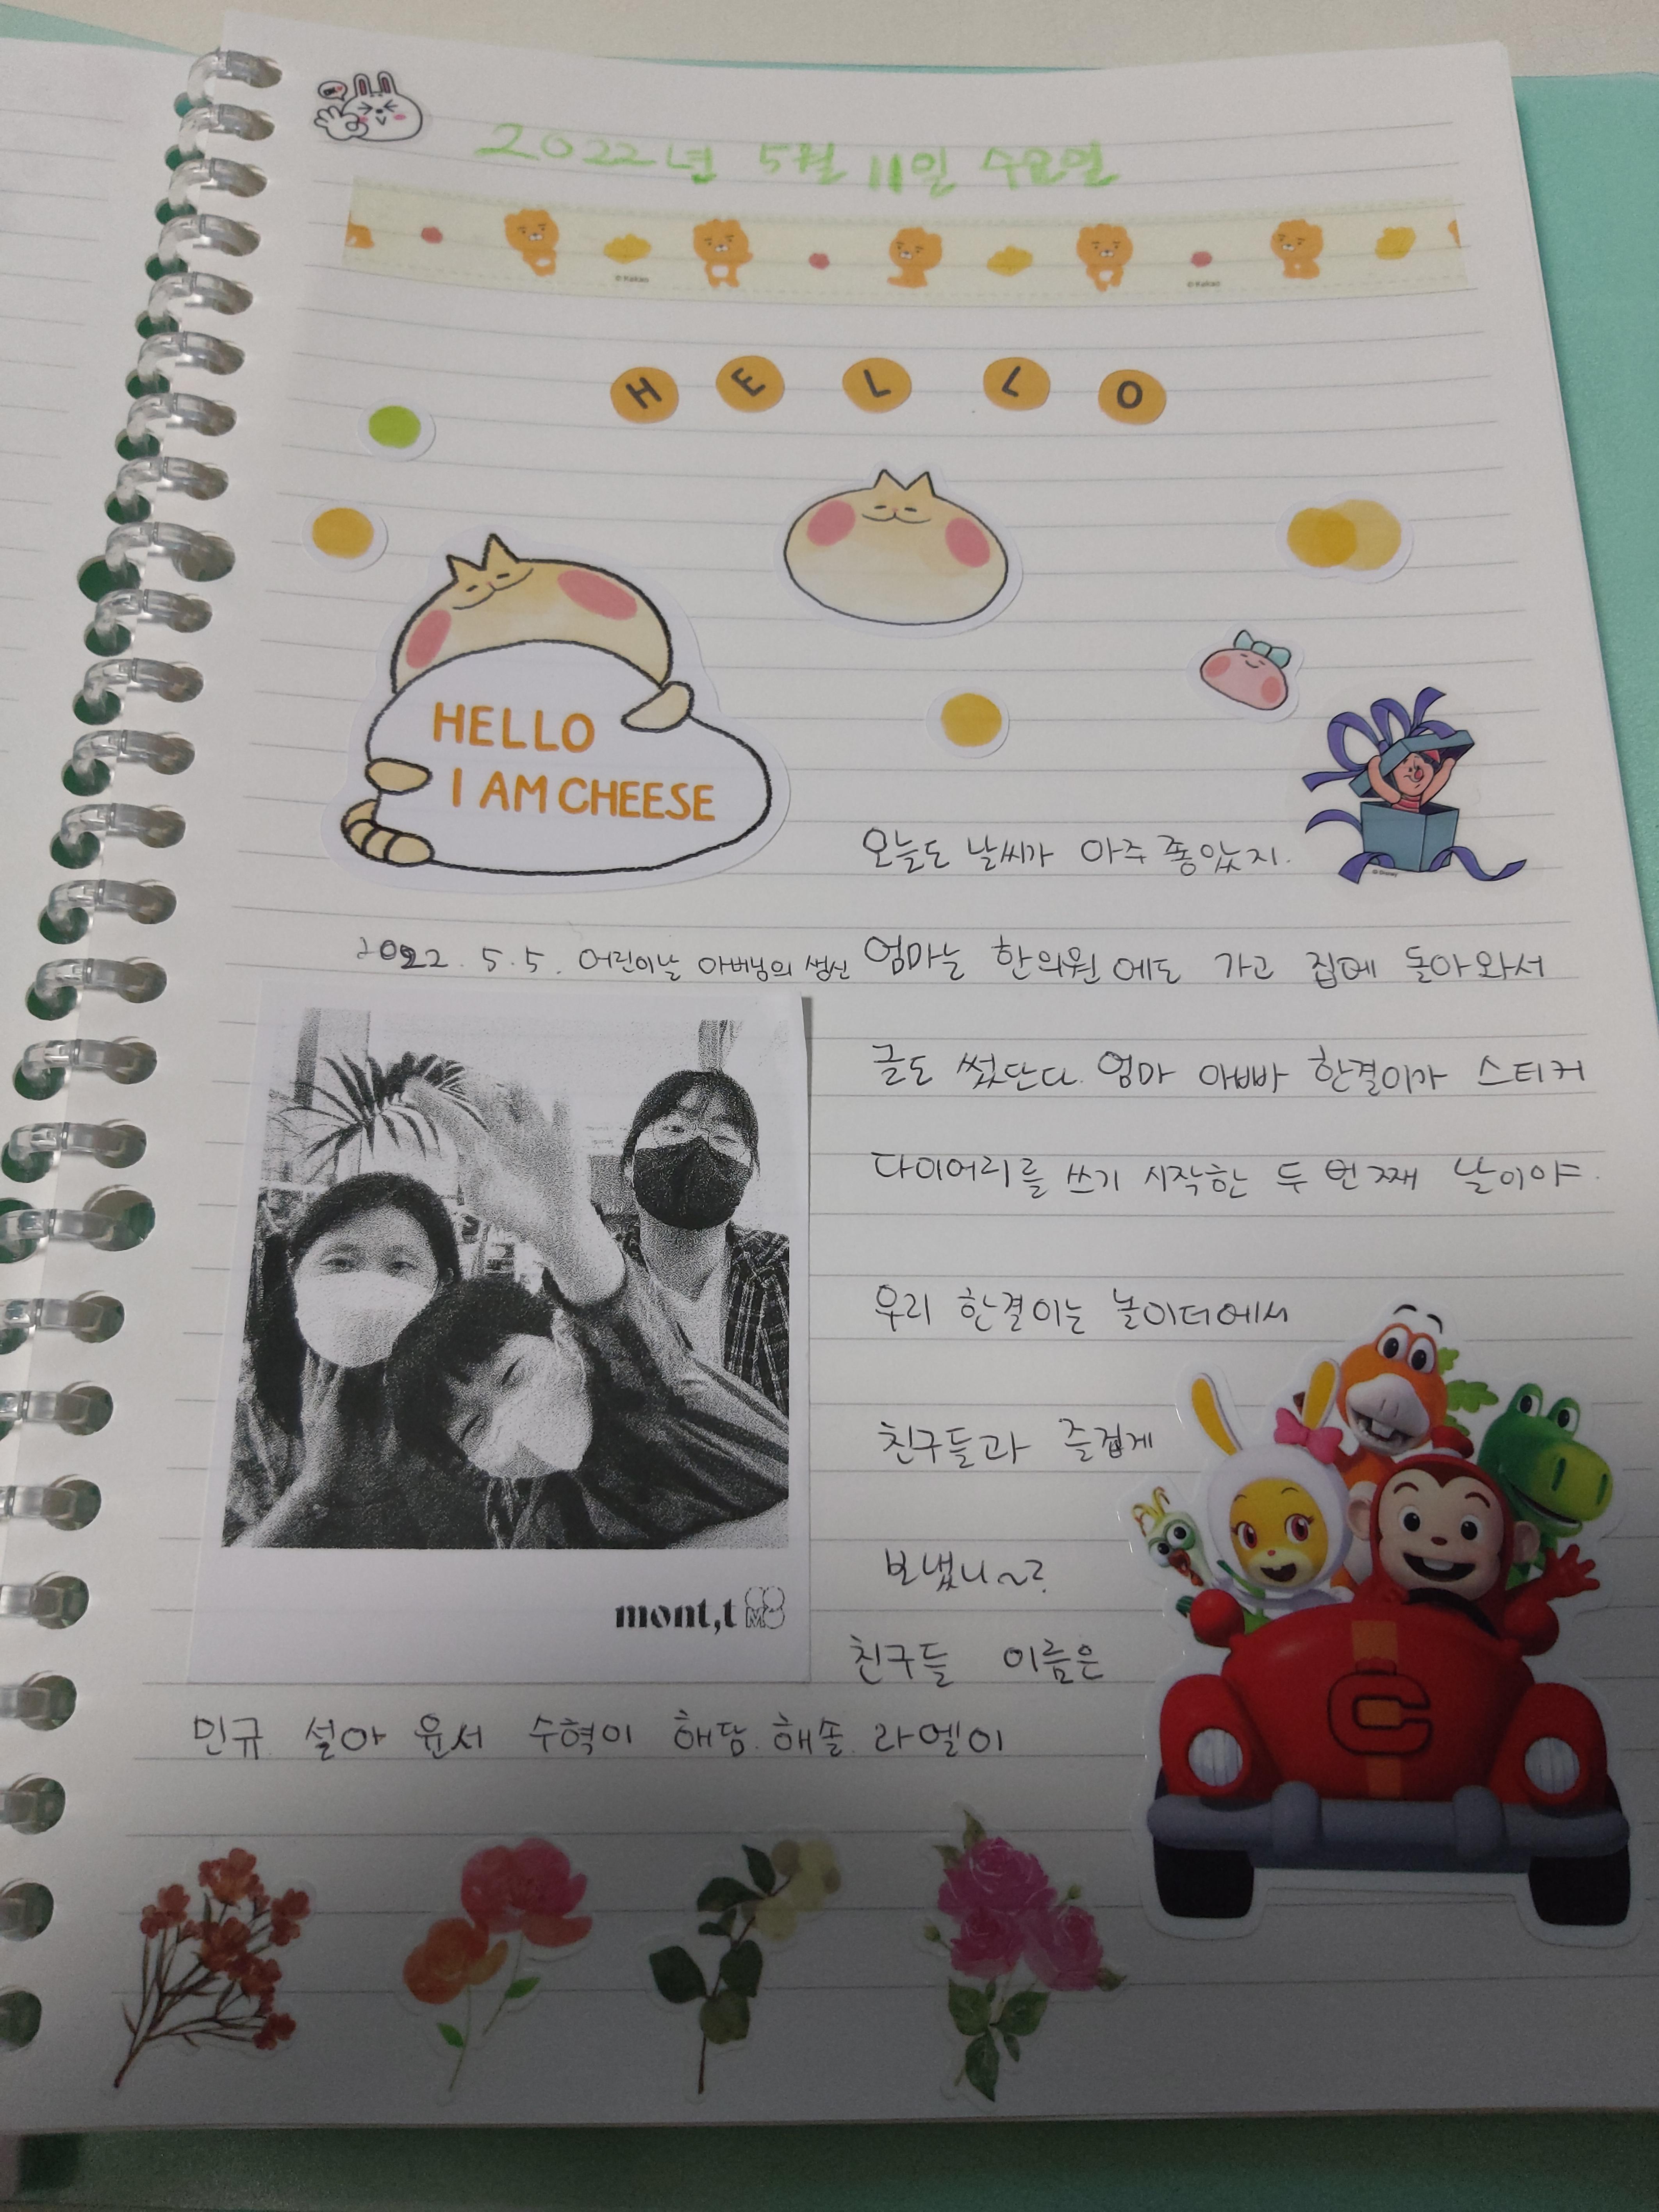 2022년 5월 11일 수요일
© Kakao
© Kakao
HELLO
HELLO
I AM CHEESE
© Disney
오늘도 날씨가 아주 좋았지.
2022. 5. 5. 어린이날 아버님의 생신
엄마는 한의원에도 가고 집에 돌아와서
글도 썼단다. 엄마 아빠 한결이가 스티커
다이어리를 쓰기 시작한 두 번째 날이야.
우리 한결이는 놀이터에서
친구들과 즐겁게
보냈니~?
mont,t
친구들 이름은
민규. 설아 윤서 수혁이 해담. 해솔. 라엘이
C